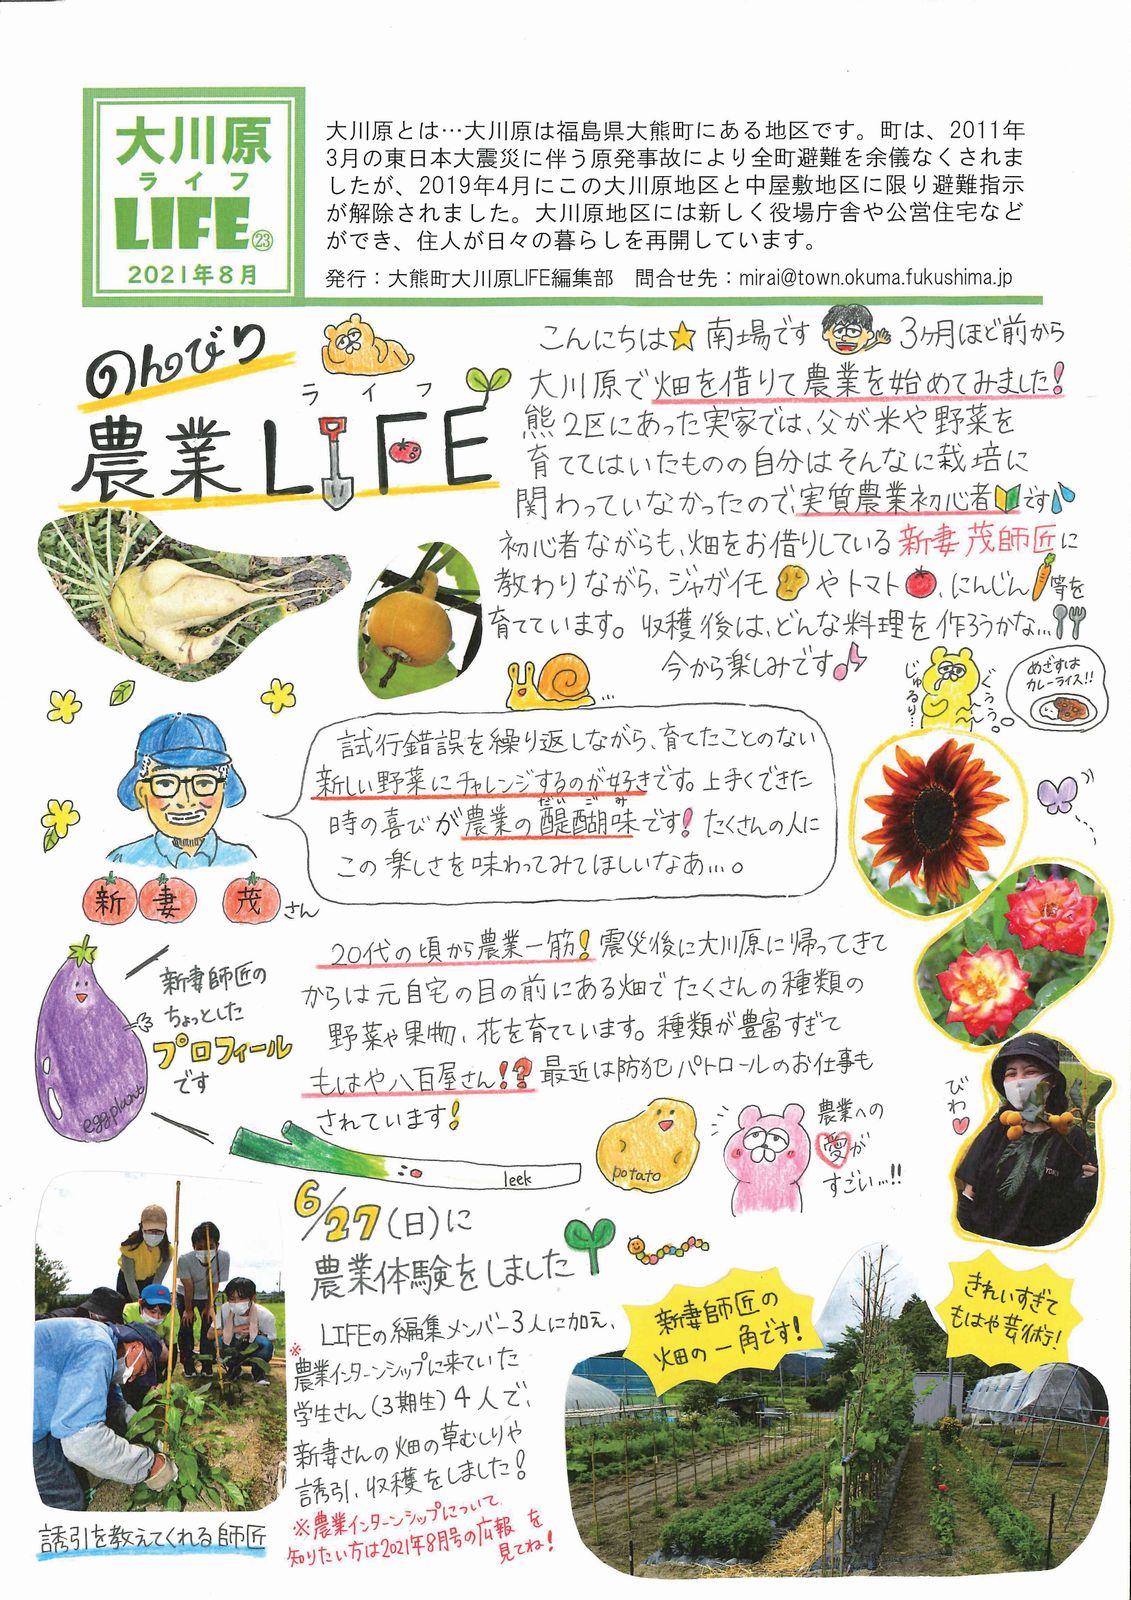 大川原
ライフ
LIFE㉓
2021年8月
大川原とは…大川原は福島県大熊町にある地区です。町は、2011年
3月の東日本大震災に伴う原発事故により全町避難を余儀なくされま
したが、2019年4月にこの大川原地区と中屋敷地区に限り避難指示
が解除されました。大川原地区には新しく役場庁舎や公営住宅など
ができ、住人が日々の暮らしを再開しています。
発行：大熊町大川原LIFE編集部　問合せ先：mirai@town.okuma.fukushima.jp
のんびり
ライフ
農業LIFE
こんにちは★南場です 3ヶ月ほど前から
大川原で畑を借りて農業を始めてみました!
熊2区にあった実家では、父が米や野菜を
育ててはいたものの自分はそんなに栽培に
関わっていなかったので、実質農業初心者です
初心者ながらも、畑をお借りしている新妻茂師匠に
教わりながら、ジャガイモやトマト、にんじん等を
育てています。収穫後は、どんな料理を作ろうかな…
今から楽しみです♪
じゅるり…
ぐぅぅぅ〜
めざすは
カレーライス!!
試行錯誤を繰り返しながら、育てたことのない
新しい野菜にチャレンジするのが好きです。上手くできた
時の喜びが農業の醍醐味です! たくさんの人に
だいごみ
この楽しさを味わってみてほしいなあ…。
新妻茂さん
新妻師匠の
ちょっとした
プロフィール
です
eggplant
20代の頃から農業一筋! 震災後に大川原に帰ってきて
からは元自宅の目の前にある畑でたくさんの種類の
野菜や果物、花を育てています。種類が豊富すぎて
もはや八百屋さん!? 最近は防犯パトロールのお仕事も
されています!
leek
potato
農業への
愛が
すごい…!!
びわ
6/27(日)に
農業体験をしました
LIFEの編集メンバー3人に加え、
※農業インターンシップに来ていた
学生さん(3期生)4人で、
新妻さんの畑の草むしりや
誘引、収穫をしました!
※農業インターンシップについて
知りたい方は2021年8月号の広報を
見てね!
誘引を教えてくれる師匠
新妻師匠の
畑の一角です!
きれいすぎて
もはや芸術!